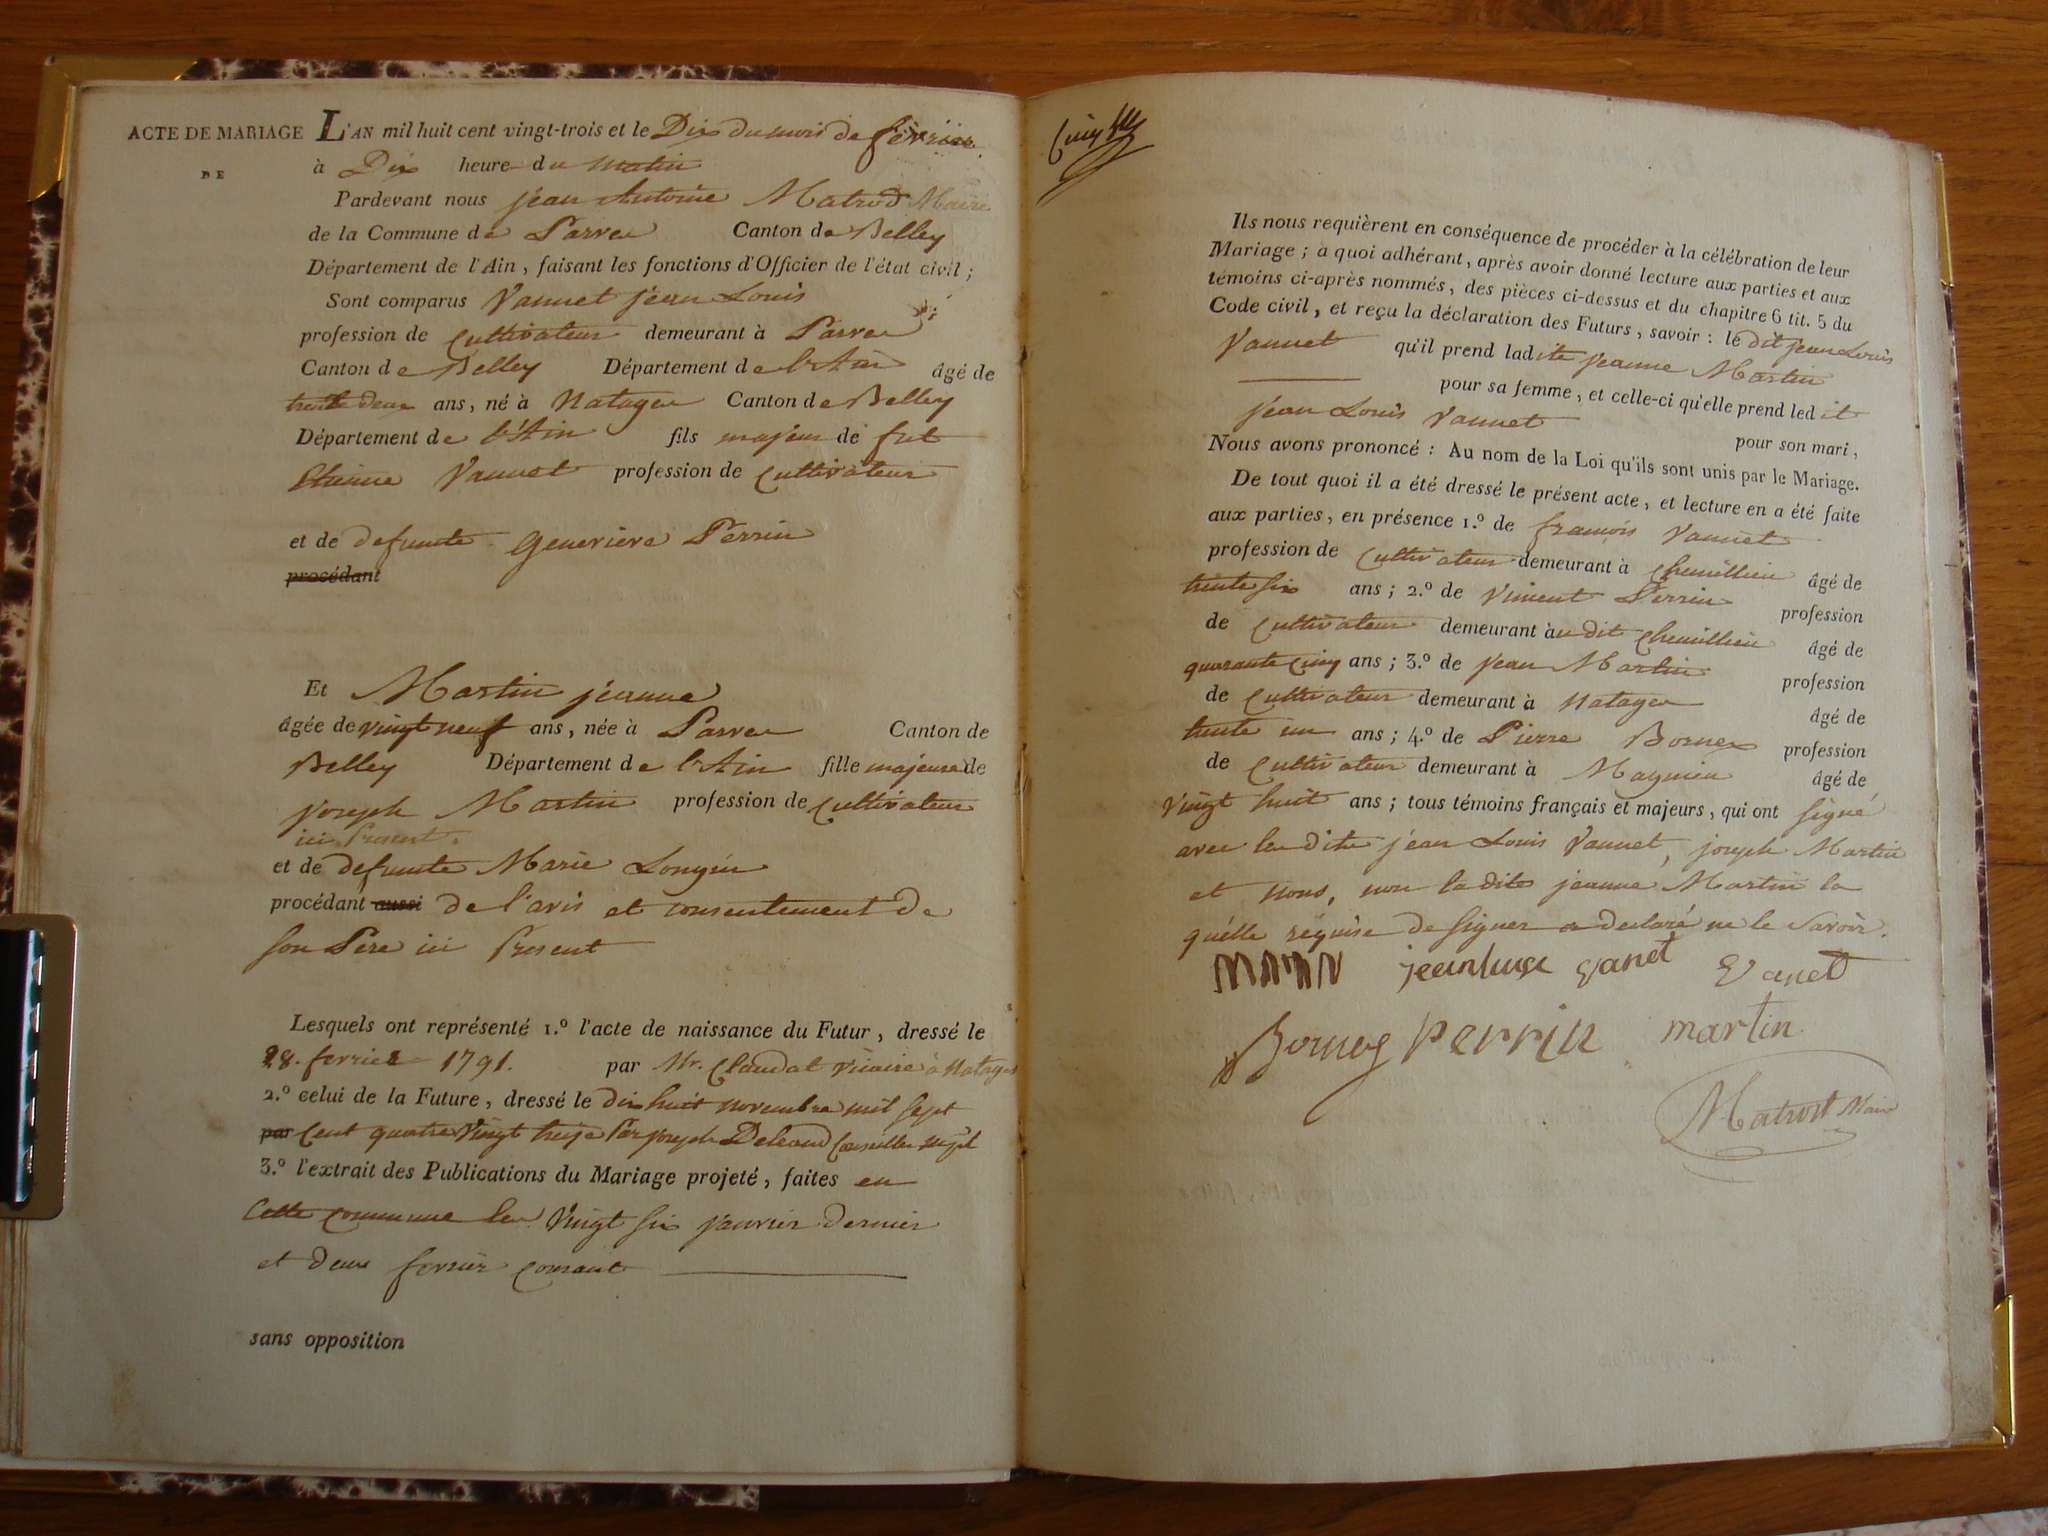 ACTE DE MARIAGE
DE
L'AN mil huit cent vingt-trois et le Dix du mois de février
à Dix heure du matin
Pardevant nous jean Antoine Matrod Maire
de la Commune de Parve Canton de Belley
Département de l'Ain, faisant les fonctions d'Officier de l'état civil ;
Sont comparus Vannet jean Louis
profession de Cultivateur demeurant à Parve
Canton de Belley Département de l'Ain âgé de
trente deux ans, né à Natages Canton de Belley
Département de l'Ain fils majeur de fut
Etienne Vannet profession de Cultivateur
et de defunte Genevieve Perrin
procédant
Et Martin jeanne
âgée de vingt neuf ans, née à Parve Canton de
Belley Département de l'Ain fille majeure de
joseph Martin profession de Cultivateur
ici Present.
et de defunte Marie Longin
procédant aussi de l'avis et consentement de
son Pere ici Present
Lesquels ont représenté 1.º l'acte de naissance du Futur, dressé le
28. fevrier 1791. par Mr. Claudat vicaire à Natages
2.º celui de la Future, dressé le dix huit novembre mil sept
par Cent quatre Vingt treize Par joseph
3.º l'extrait des Publications du Mariage projeté, faites en
Cette Commune les Vingt six janvier dernier
et deux fevrier Courant
sans opposition
Ils nous requièrent en conséquence de procéder à la célébration de leur
Mariage ; à quoi adhérant, après avoir donné lecture aux parties et aux
témoins ci-après nommés, des pièces ci-dessus et du chapitre 6 tit. 5 du
Code civil, et reçu la déclaration des Futurs, savoir : le dit jean Louis
Vannet qu'il prend ladite jeanne Martin
pour sa femme, et celle-ci qu'elle prend ledit
jean Louis Vannet pour son mari,
Nous avons prononcé : Au nom de la Loi qu'ils sont unis par le Mariage.
De tout quoi il a été dressé le présent acte, et lecture en a été faite
aux parties, en présence 1.º de françois Vannet
profession de Cultivateur demeurant à Chemillieu âgé de
trente six ans ; 2.º de Vincent Perrin profession
de Cultivateur demeurant àu dit Chemillieu âgé de
quarante Cinq ans ; 3.º de jean Martin profession
de Cultivateur demeurant à Natages âgé de
trente un ans ; 4.º de Pierre Bornex profession
de Cultivateur demeurant à Magnieu âgé de
Vingt huit ans ; tous témoins français et majeurs, qui ont signé
avec le dit jean Louis Vannet, joseph Martin
et nous, non la dite jeanne Martin la
quélle réquise de signer a declaré ne le Savoir.
vanet vanet
perrin martin
Matrod Maire